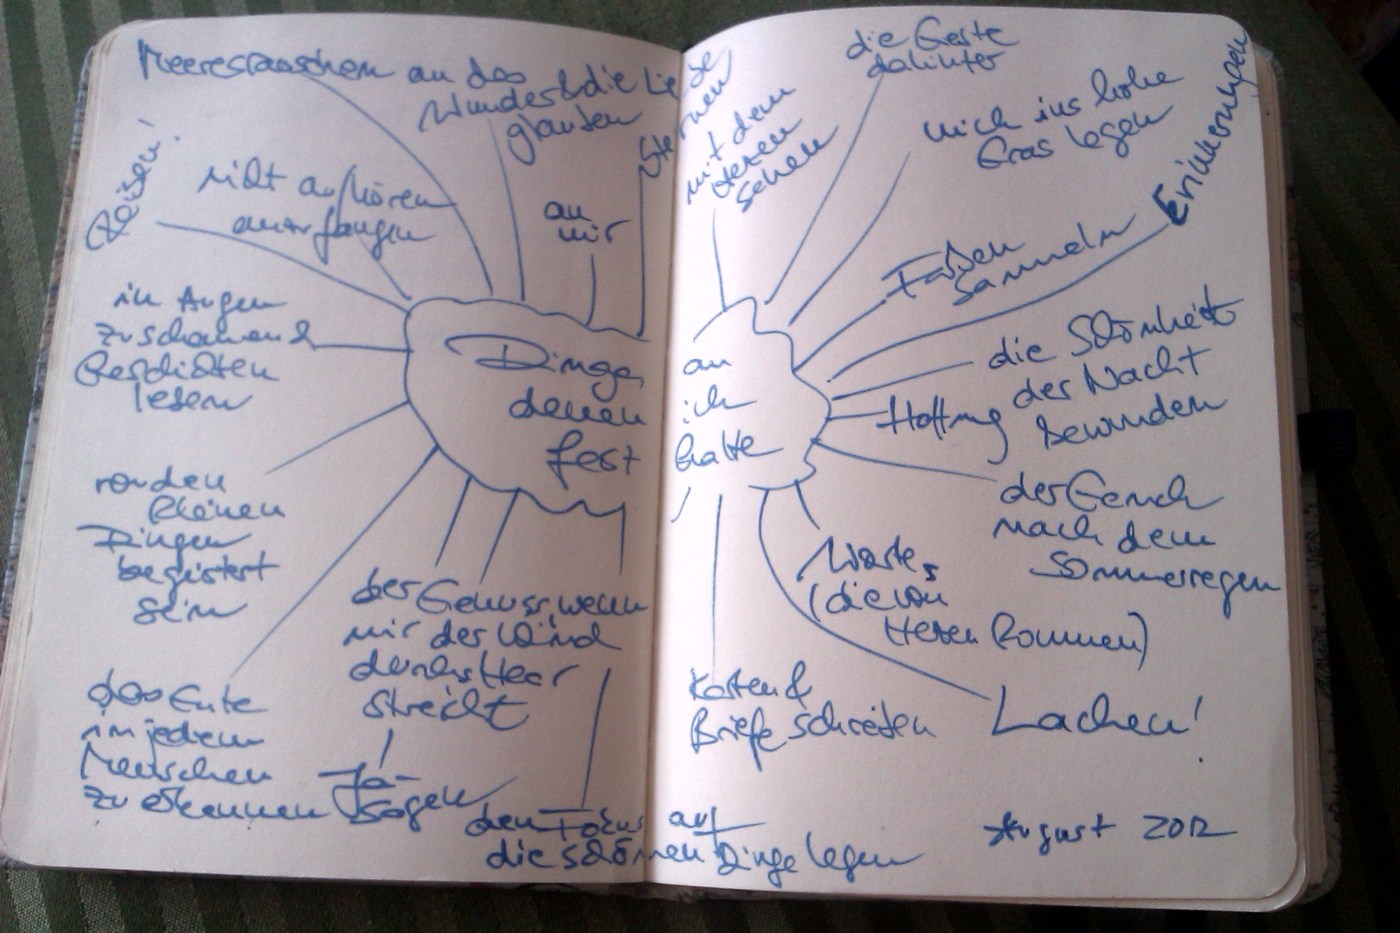 Meeresrauschen
an das
Wunder & die Liebe
glauben
Sternen
Reisen!
nicht aufhören
anzufangen
an
mir
in Augen
zu schauen &
Geschichten
lesen
Dinge, an
denen ich
fest halte
von den
kleinen
Dingen
begeistert
sein
das Gute
in jedem
Menschen
zu erkennen
der Genuss, wenn
mir der Wind
durchs Haar
streicht
Ja-
Sagen
den Fokus auf
die schönen Dinge legen
mit dem
Herzen
sehen
die Geste
dahinter
mich ins hohe
Gras legen
Farben
sammeln
Erinnerungen
die Schönheit
der Nacht
bewundern
Hoffnung
der Geruch
nach dem
Sommerregen
Worte,
(die von
Herzen kommen)
Lachen!
Karten &
Briefe schreiben
August 2012